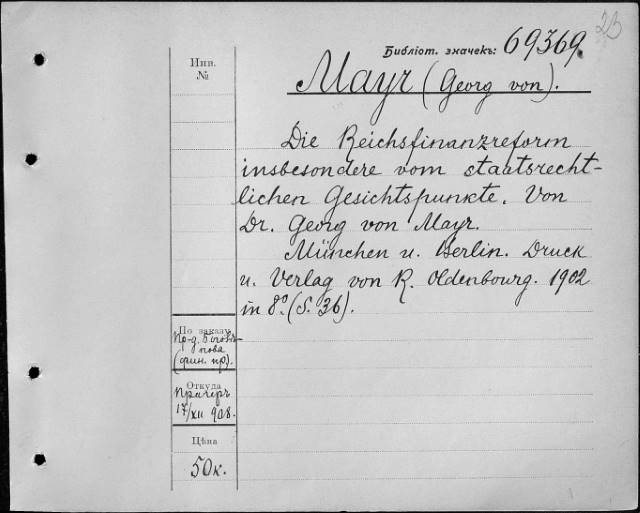 23
Библіот. значекъ: 69369.
Инв.
№
Mayr (Georg von).
Die Reichsfinanzreform
insbesondere vom staatsrecht-
lichen Gesichtspunkte. Von
Dr. Georg von Mayr.
München u. Berlin. Druck
u. Verlag von R. Oldenbourg. 1902
in 8º. (S. 36).
По заказу
Пр-д.
(фин. пр.).
Откуда
17/XII 908.
Цѣна
50к.